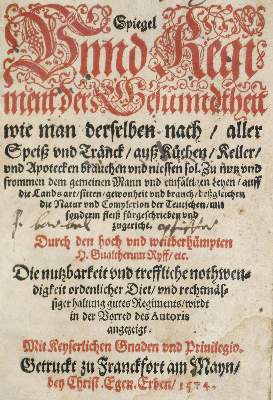 Spiegel
Vnnd Regi
ment der Gesundtheit
wie man derselben nach / aller
Speiß vnd Tränck / auß Kuchen / Keller /
vnd Apotecken brauchen vnd niessen sol. Zu nutz vnd
frommen dem gemeinen Mann vnd einfältigen Leyen / auff
die Landsart / sitten / gewonheit vnd brauch / deßgleichen
die Natur vnd Complexion der Teutschen / mit
sonderm fleiß fürgeschrieben vnd
zugericht.
Durch den hoch vnd weitberhümpten
H. Gualtherum Ryff / etc.
Die nutzbarkeit vnd treffliche nothwen-
digkeit ordenlicher Diet / vnd rechtmäs-
siger haltung gutes Regiments / wirdt
in der Vorred des Autoris
angezeigt.
Mit Keyserlichen Gnaden vnd Priuilegio.
Getruckt zu Franckfort am Mayn /
bey Christ. Egen. Erben /